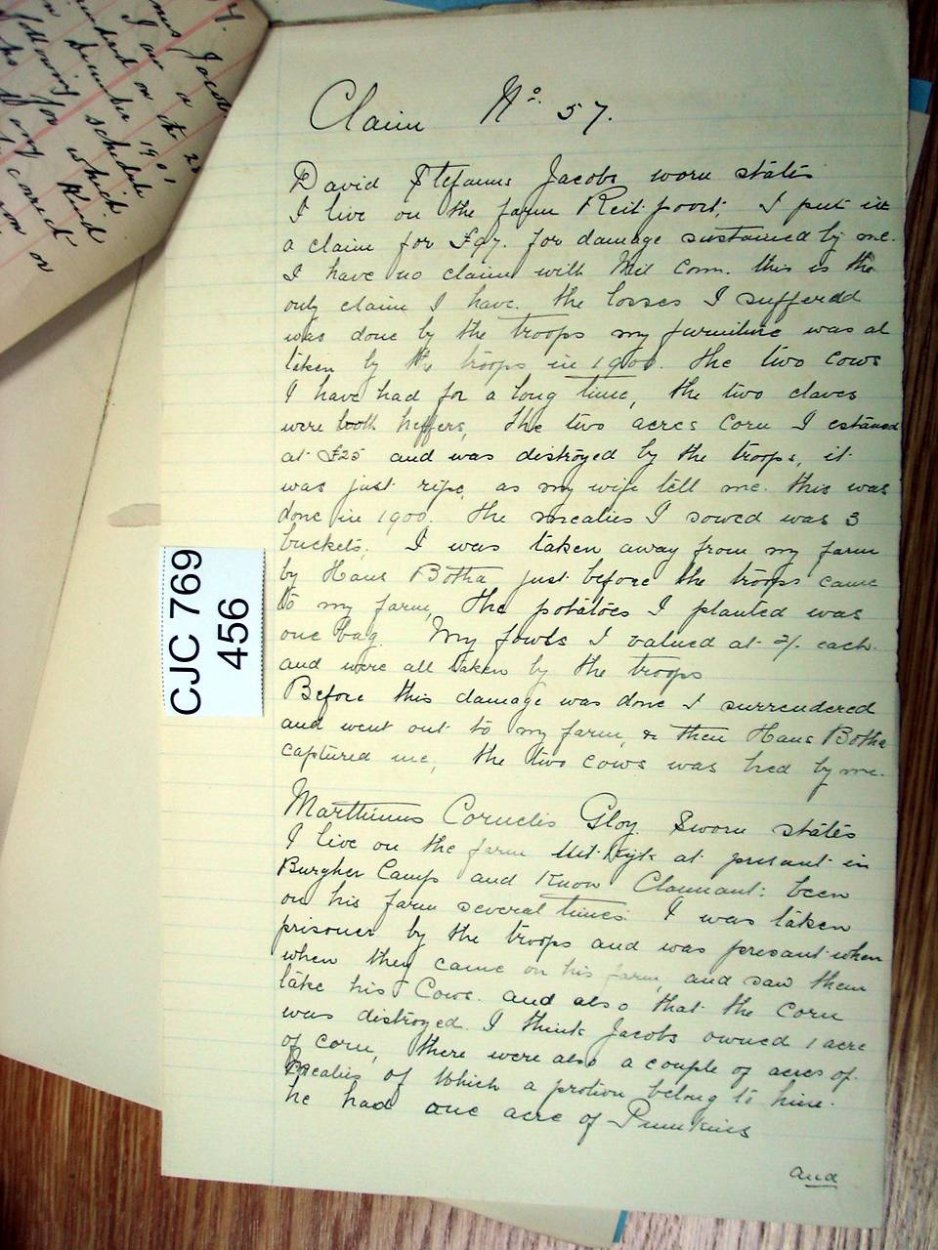 Claim No. 57.
David Stefanus Jacobs sworn states
I live on the farm Reit poort, I put in
a claim for £97. for damage sustained by me.
I have no claim with Mil Com. this is the
only claim I have. the losses I sufferdd
was done by the troops my furniture was al
taken by the troops in 1900. the two cows
I have had for a long time, the two claves
were both heffers, the two acres corn I
at £25 and was distroyed by the troops, it
was just ripe, as my wife tell me. this was
done in 1900. the mealies I sowed was 3
buckets. I was taken away from my farm
by Hans Botha just before the troops came
to my farm, the potatoes I planted was
one bag. My fowls I valued at 2/. each.
and were all taken by the troops
Before this damage was done I surrendered
and went out to my farm, & then Hans Botha
captured me, the two cows was bred by me.
Marthinus Cornelis Gloy. Sworn states
I live on the farm at present in
Burgher Camp and Know Claimant: been
on his farm several times. I was taken
prisoner by the troops and was presant when
when they came on his farm, and saw them
take his Cows. and also that the Corn
was distroyed. I think Jacobs owned 1 acre
of corn, there were also a couple of acres of
Mealies of which a protion belong to him.
he had one acre of Pumkins
and
CJC 769
456
I am a
on the 28
December 1901
schedule
following
for which
correct